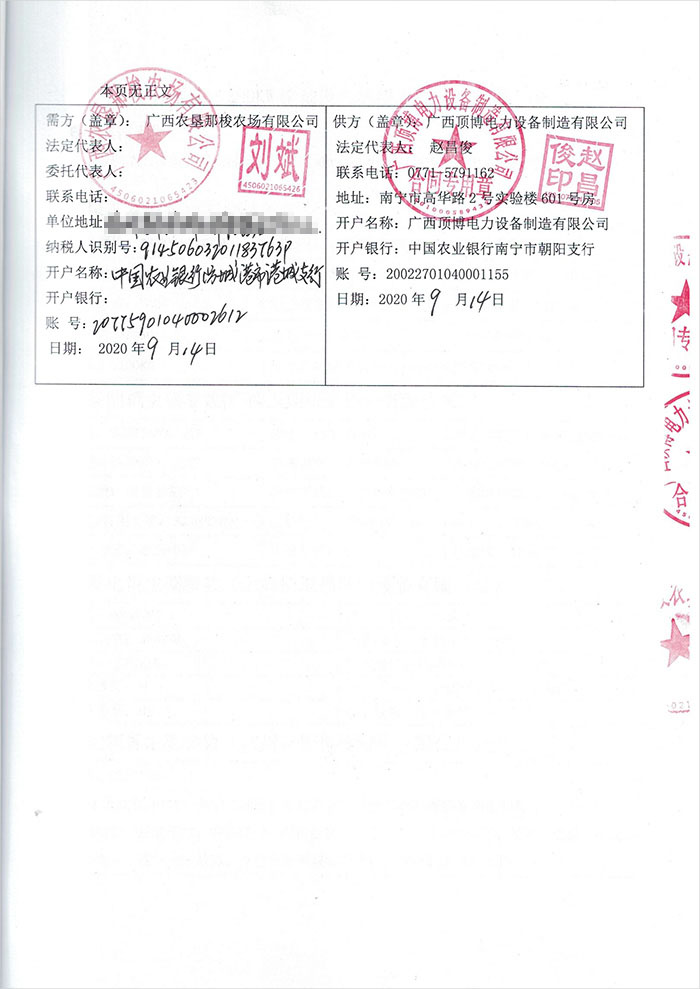 本页无正文
需方（盖章）：广西农垦那梭农场有限公司
法定代表人：
委托代表人：
联系电话：
单位地址：
纳税人识别号：
开户名称：中国农业银行防城港市港城支行
开户银行：
账 号：20775901040002612
日期： 2020 年 9 月 14 日
刘斌
4506021065426
供方（盖章）：广西顶博电力设备制造有限公司
法定代表人： 赵昌俊
联系电话：0771-5791162
地址：南宁市高华路 2 号实验楼 601 号房
开户名称：广西顶博电力设备制造有限公司
开户银行：中国农业银行南宁市朝阳支行
账 号：20022701040001155
日期：2020 年 9 月 14 日
广西农垦那梭农场有限公司
4506021065423
广西顶博电力设备制造有限公司
合同专用章
赵昌
俊印